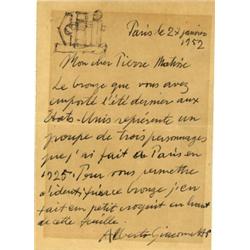 Paris le 27 janvier
1952
Mon cher Pierre Matisse
Le bronze que vous avez
importé l'été dernier aux
Etats-Unis représente un
groupe de trois personnages
que j'ai fait de Paris en
1925. Pour vous permettre
d'identifier ce bronze j'en
fait un petit croquis en haut
de cette feuille.
Alberto Giacometti